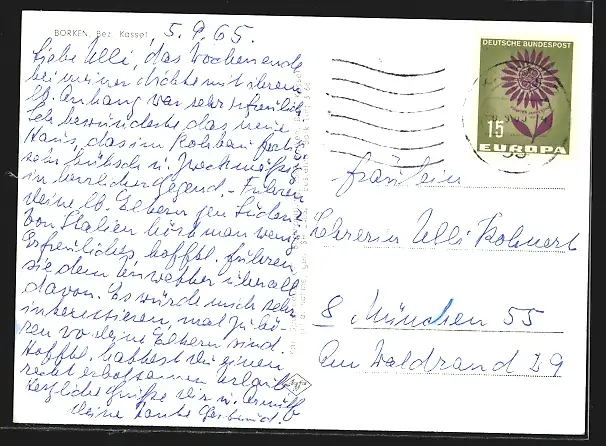 BORKEN Bez. Kassel
5.9.65.
Liebe Ulli, das Wochenende
bei meiner Nichte mit ihrem
lb. Anhang war sehr erfreulich.
Ich bewunderte das neue
Haus, das im Rohbau fertig,
sehr hübsch u. zweckmäßig
in herrlicher Gegend. - Fuhren
deine lb. Eltern gen Süden?
Von Italien hört man wenig
Erfreuliches, hofftl. fuhren
sie dem Unwetter überall
davon. Es würde mich sehr
interessieren, mal zu hö-
ren wo deine Eltern sind.
Hofftl. hattest du einen
recht erholsamen Urlaub.
Herzliche Grüße dir u.
deine Tante Gertrud.
DEUTSCHE BUNDESPOST
15
EUROPA
Fräulein
Lehrerin Ulli Kohnert
8 München 55
Am Waldrand 29